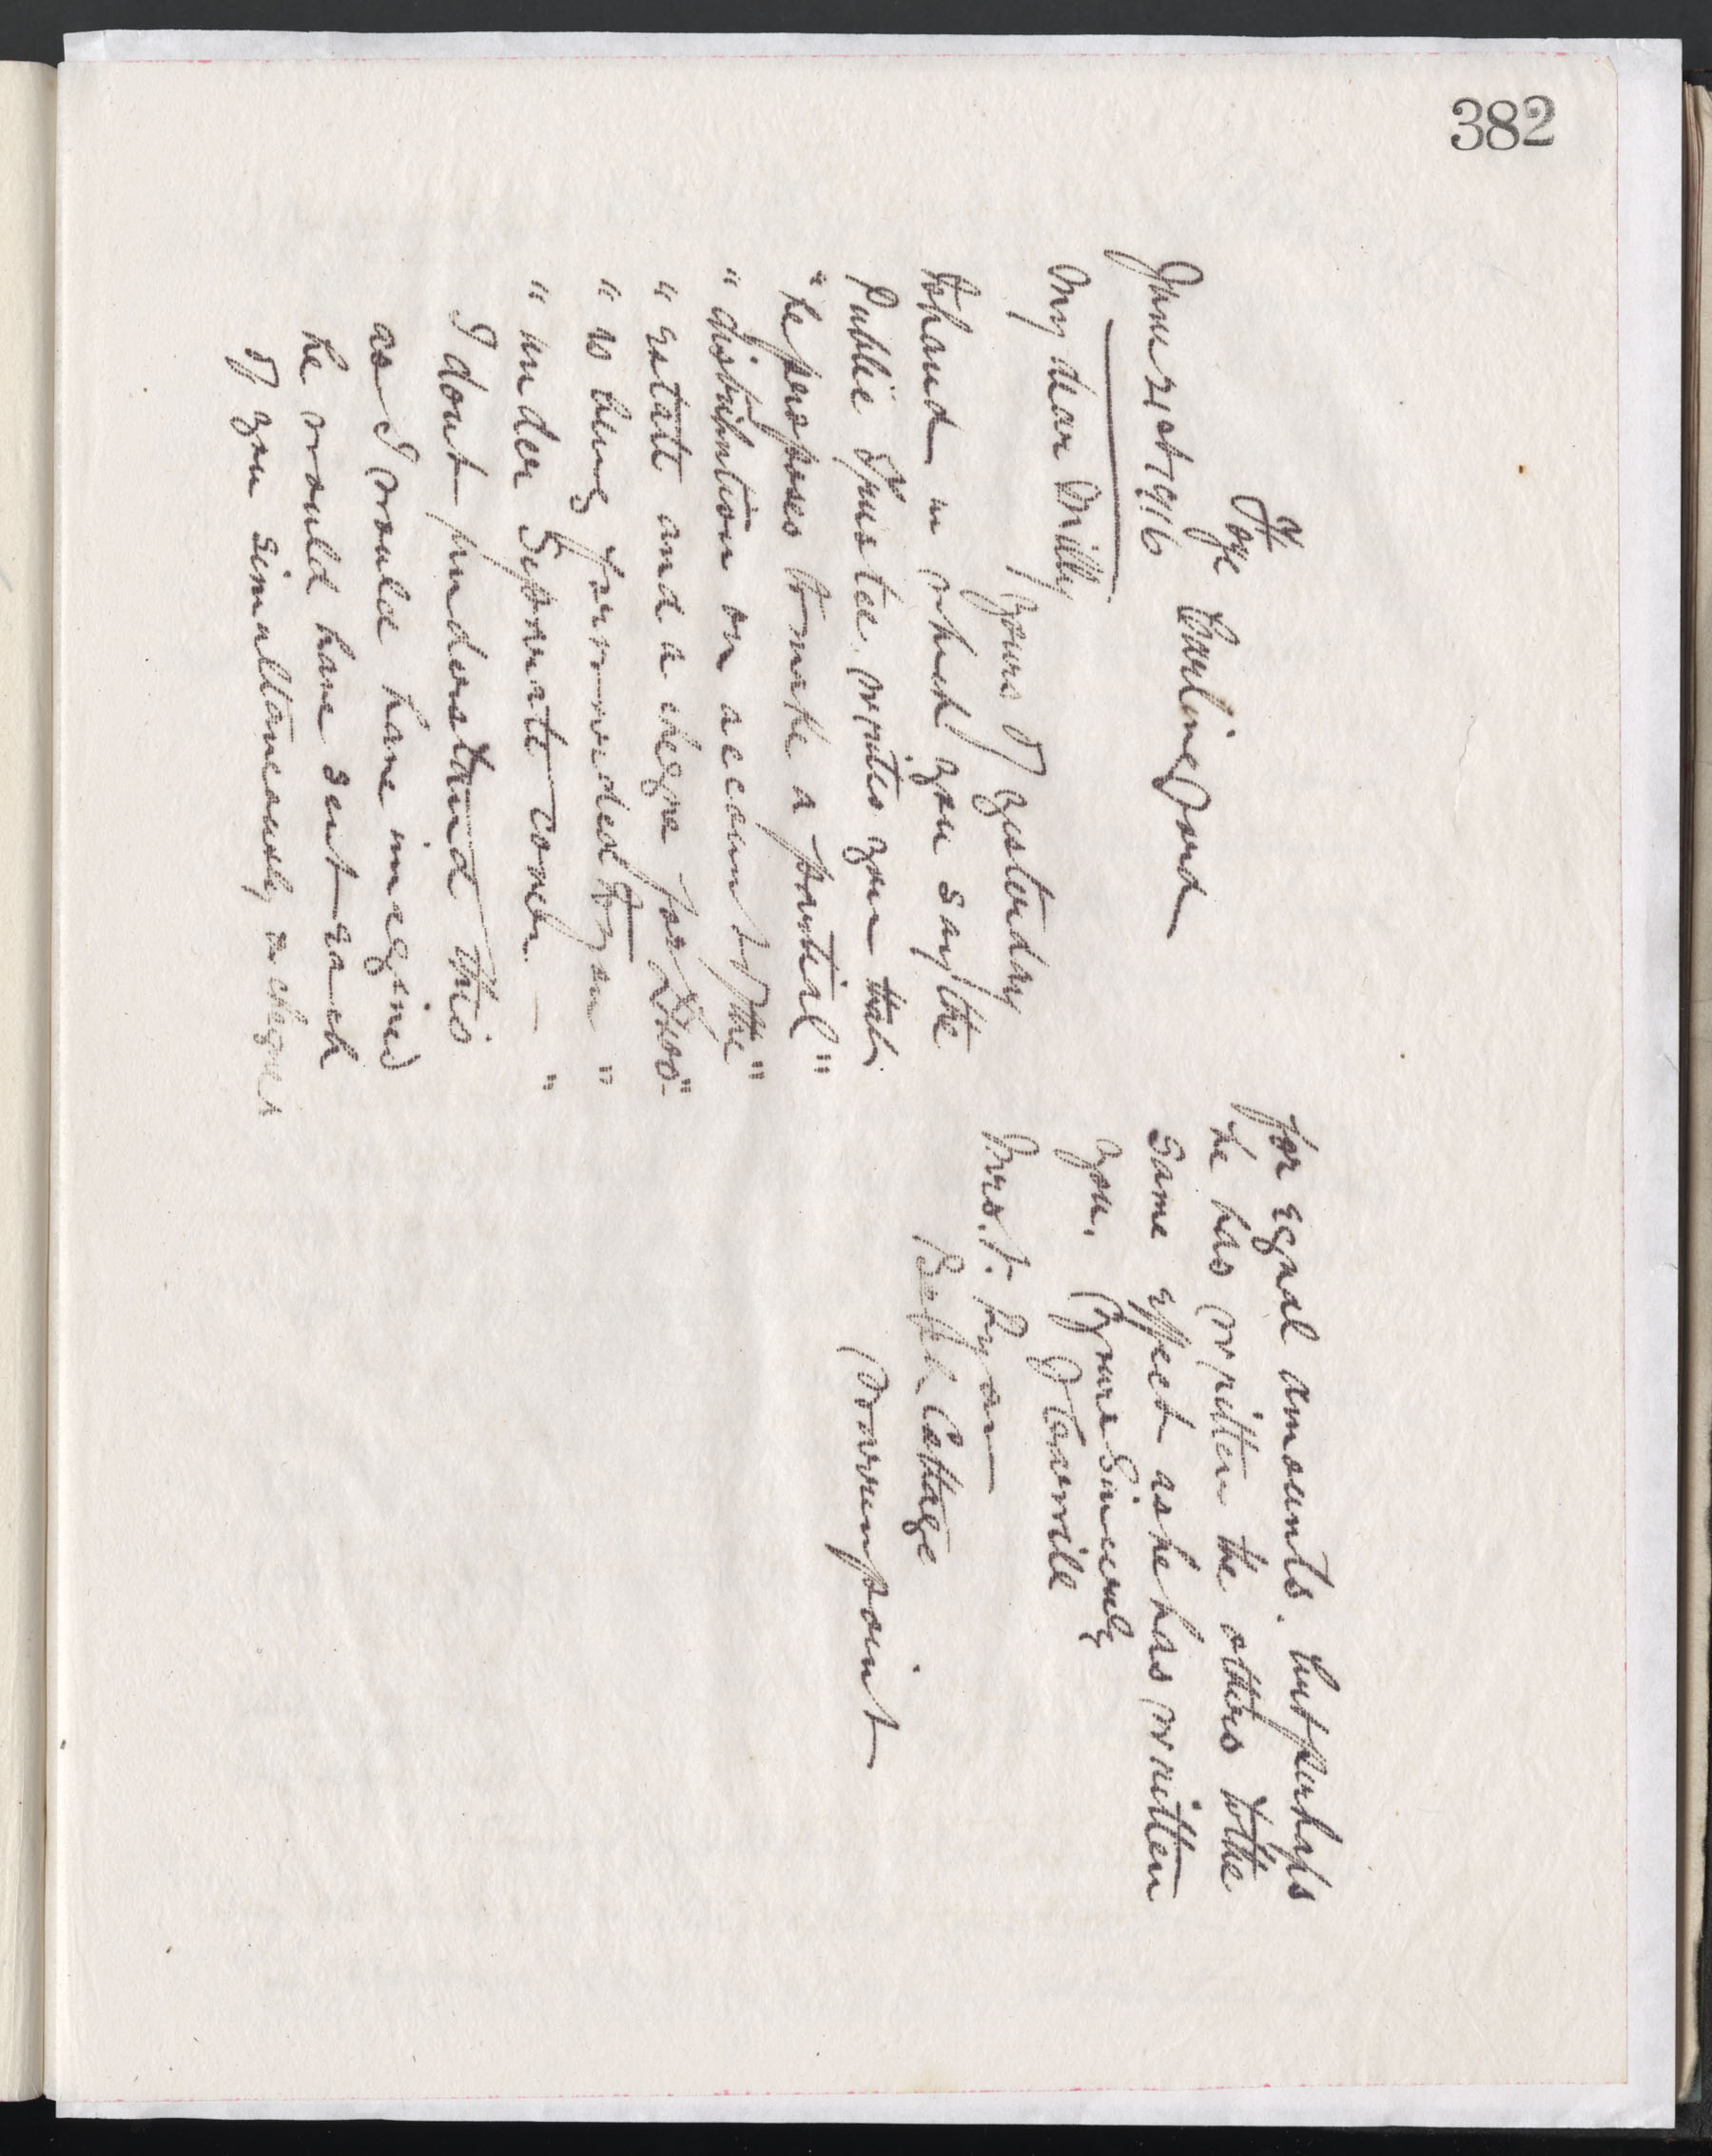 382
Foxe Carlingford
June 21st 1916
My dear Milly
Yours of yesterday
to hand in which you say the
Public Trustee writes you that
"he proposes to make a partial"
"distribution on account of the"
"estate and a cheque for £400"
"is being forwarded to you"
"under separate cover. — "
I dont understand this
as I would have imagined
he would have sent each
of you simultaneously a cheque
for equal amounts. but perhaps
he has written the others to the
same effect as he has written
you. Yours Sincerely
Mrs. Ryan
Cottage
Warrenpoint